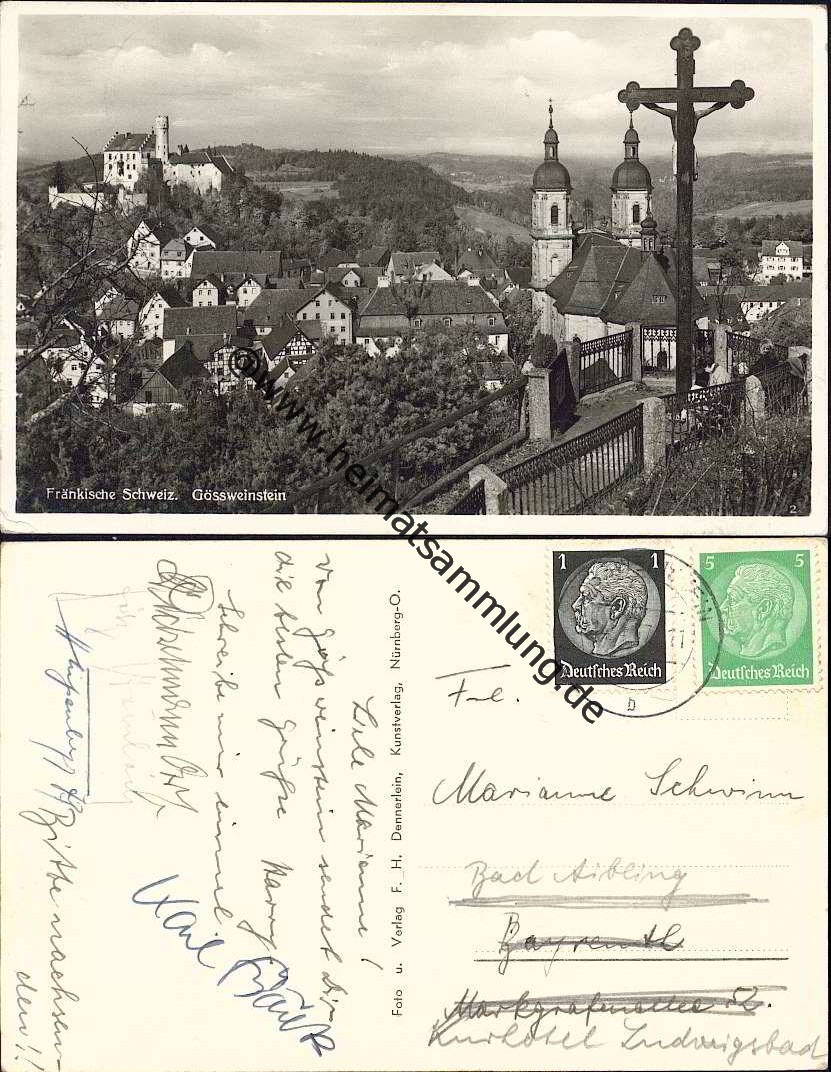 Fränkische Schweiz. Gössweinstein
2
©www.heimatsammlung.de
1 1
Deutsches Reich
5 5
Deutsches Reich
b
Foto u. Verlag F. H. Dennerlein, Kunstverlag, Nürnberg-O.
Liebe Marianne!
Von Gößweinstein sendet Dir
die besten Grüße Harry
Schreibe mir einmal.
Karl
Bitte nachsen-
den!!
Frl.
Marianne Schwinn
Bad Aibling
Bayreuth
Markgrafenallee 52.
Kurhotel Ludwigsbad